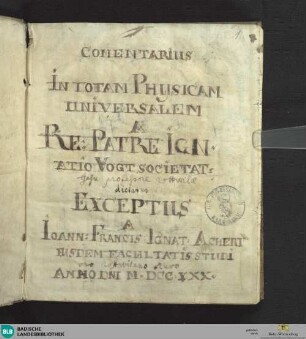 COMENTARIUS
IN TOTAM PHYSICAM
UNIVERSALEM
A
RE: PATRE IGN
ATIO VOGT SOCIETAT:
Jesu professore
EXCEPTUS
A
IOANN: FRANCIS: IGNAT: ACHERT
EIUSDEM FACULTATIS STUDI
oso
ANNO DNI M·DCC·XXX·
BLB
BADISCHE
LANDESBIBLIOTHEK
Baden-Württemberg